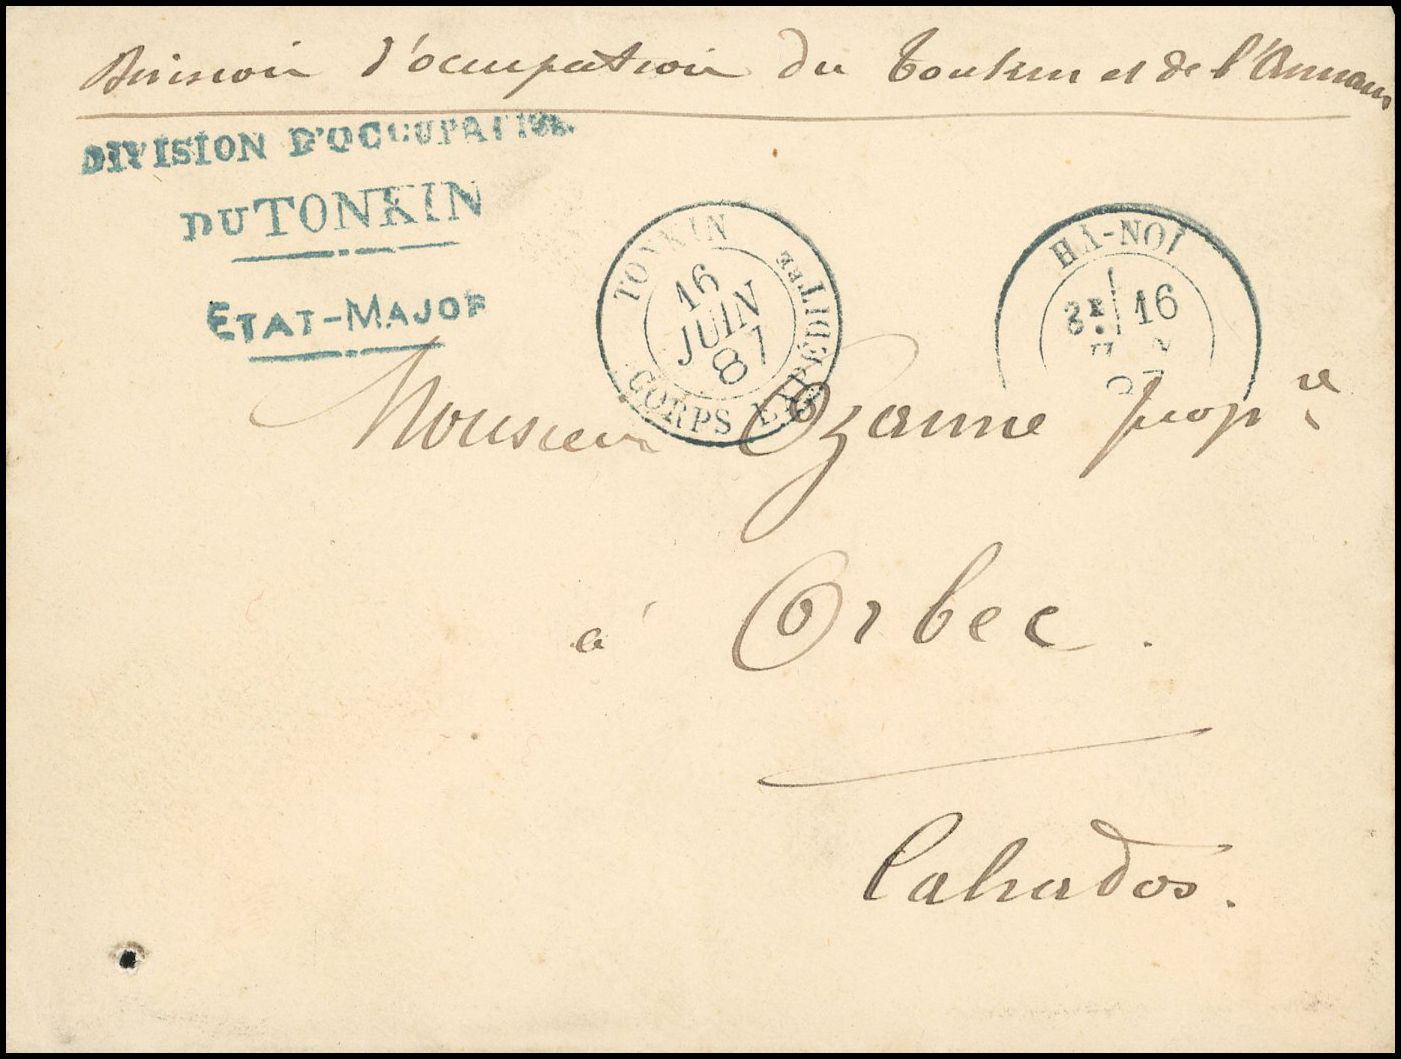 Division d'occupation du Tonkin et de l'Annam
DIVISION D'OCCUPATION
DU TONKIN
ETAT-MAJOR
TONKIN
CORPS EXPÉDITRE
16
JUIN
87
HA-NOÏ
2E 16
87
Monsieur Ozanne propre
à Orbec.
Calvados.